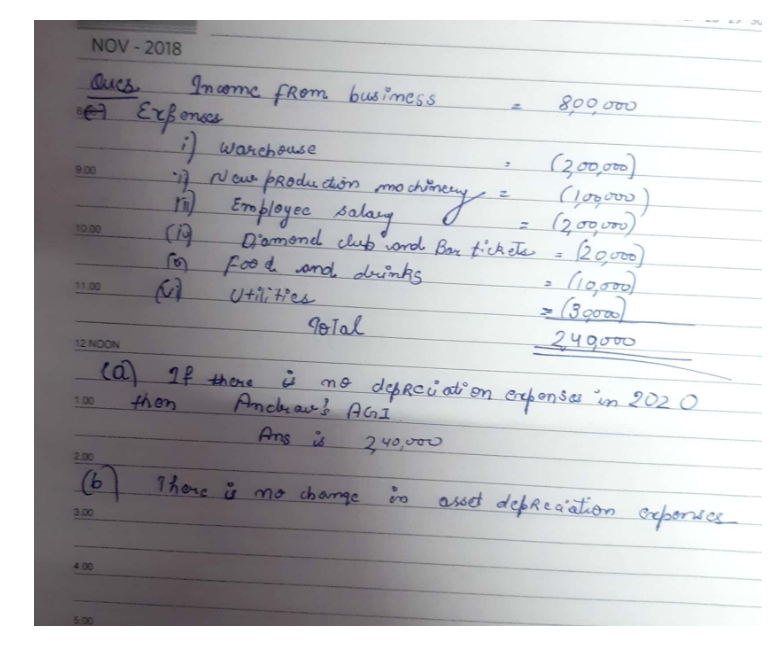 NOV - 2018
Ques. Income from business = 800,000
Expenses
i) warehouse = (200,000)
9.00
ii) New production machinery = (100,000)
iii) Employee salary = (200,000)
10.00
(iv) Diamond club and Bar tickets = (20,000)
(v) food and drinks = (10,000)
11.00
(vi) Utilities = (30,000)
Total 240,000
12 NOON
(a) If there is no depreciation expenses in 2020
1.00
then Andraw's AGI
Ans is 2,40,000
2.00
(b) There is no change in asset depreciation expenses
3.00
4.00
5.00